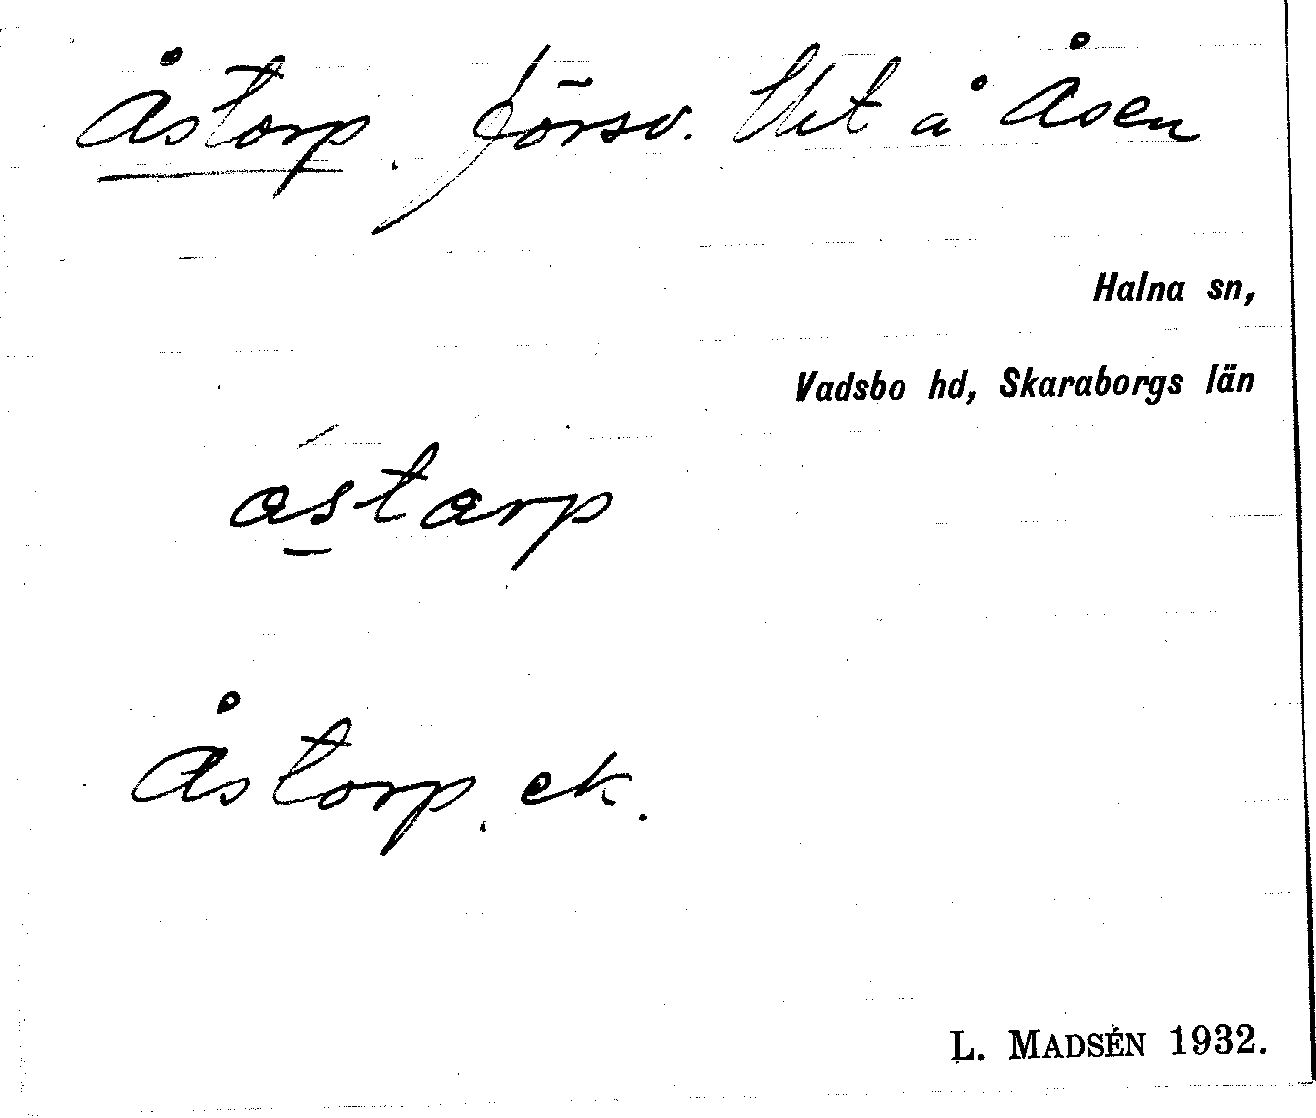 Åstorp. försv. lht å Åsen
Halna sn,
Vadsbo hd, Skaraborgs län
ástarp
Åstorp. ek.
L. MADSÉN 1932.